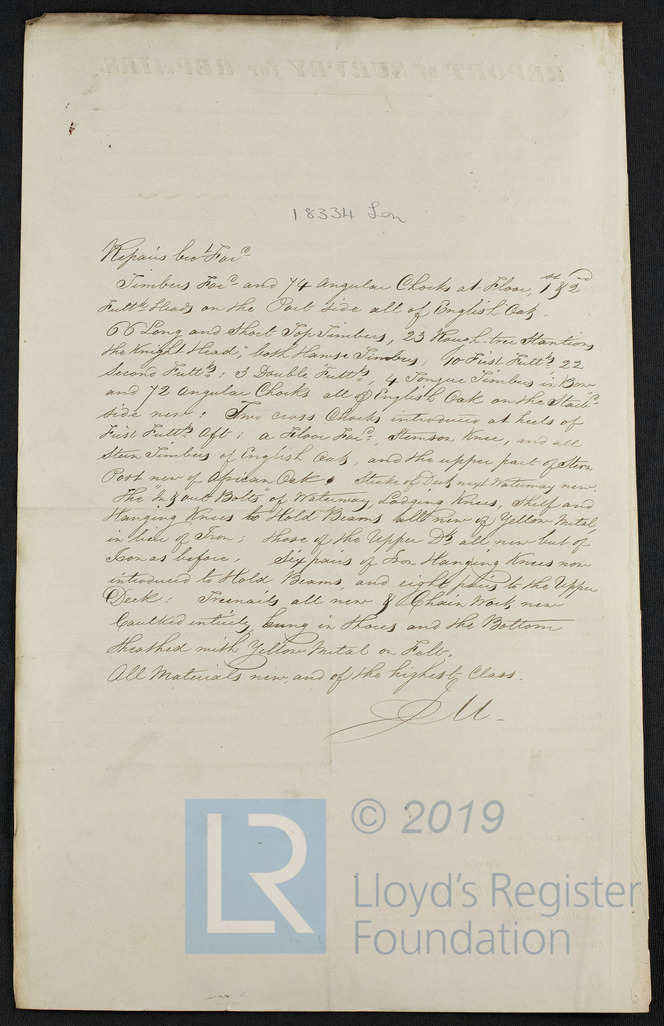 REPORT of SURVEY for REPAIRS.
18334 Lon
Repairs
Timbers Fac^d and 74 Angular Chocks at Floor, 1^st & 2^nd
Futt^k Heads on the Port side all of English Oak.
66 Long and Short Top Timbers, 23 Rough-tree Stantions
the Knight Head, both Hawse Timbers, 40 First Futt^ks 22
Second Futt^ks; 3 Double Futt^ks, 4 Tongue Timbers in Bow
and 72 Angular Chocks all of English Oak on the Starb^d
side new: Two cross Chocks introduced at heels of
First Futt^ks Aft; a Floor Fac^d. Stemson Knee, and all
Stern Timbers of English Oak, and the upper part of Stern
Post new of African Oak. Strake of Deck next Waterway new.
The In & out Bolts of Waterway, Lodging Knees, Shelf and
Hanging Knees to Hold Beams all new of Yellow Metal,
in lieu of Iron; those of the Upper D^k all new but of
Iron as before; Six pairs of Iron Hanging Knees now
introduced to Hold Beams, and eight pairs to the Upper
Deck: Treenails all new & Chain Work new
Caulked entirely, hung in Shores and the Bottom
sheathed with Yellow Metal on Felt.
All Materials new, and of the highest Class.
LR
© 2019
Lloyd's Register
Foundation